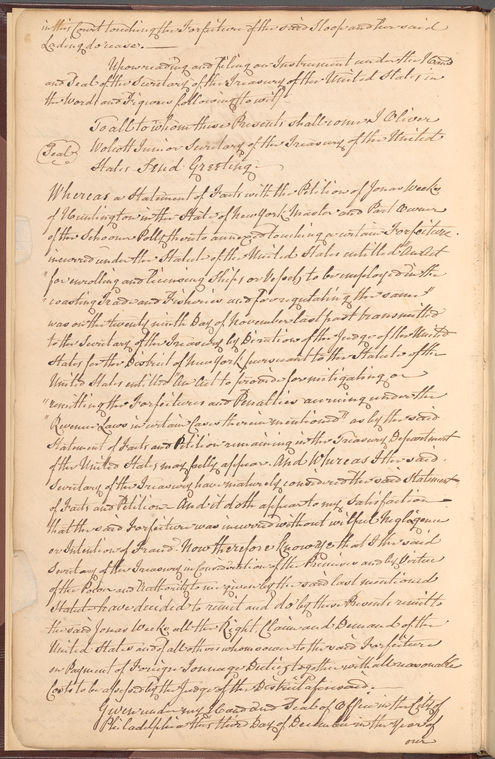 in this Court touching the Forfeiture of the said Sloop and her said
Lading do cease.
Upon reading and filing an Instrument under the Hand
and Seal of the Secretary of the Treasury of the United States in
the Words and Figures following to wit,
To all to whom these Presents shall come, I Oliver
Seal
Wolcott Junior Secretary of the Treasury of the United
States Send Greeting.
Whereas a Statement of Facts with the Petition of Jonas Weeks
of Huntington in the State of New York, Master and Part Owner
of the Schooner Polly thereto annexed touching a certain Forfeiture
incurred under the Statute of the United States entitled "An Act
"for enrolling and licensing Ships or Vessels to be employed in the
"coasting Trade and Fisheries and for regulating the same"
was on the twenty ninth Day of November last past transmitted
to the Secretary of the Treasury by Direction of the Judge of the United
States for the District of New York, pursuant to the Statute of the
United States entitled "An Act to provide for mitigating or
"remitting the Forfeitures and Penalties accruing under the
"Revenue Laws in certain Cases therein mentioned" as by the said
Statement of Facts and Petition remaining in the Treasury Department
of the United States may fully appear. And Whereas I the said
Secretary of the Treasury have maturely considered the said Statement
of Facts and Petition And it doth appear to my Satisfaction
that the said Forfeiture was incurred without wilful Negligence
or Intention of Fraud. Now therefore Know Ye that I the said
Secretary of the Treasury in Consideration of the Premises and by Virtue
of the Power and Authority to me given by the said last mentioned
Statute have decided to remit and do by these Presents remit to
the said Jonas Weeks all the Right Claim and Demand of the
United States and of all others whomsoever to the said Forfeiture
on Payment of Foreign Tonnage Duties together with all reasonable
Costs to be assessed by the Judge of the District aforesaid.
Given under my Hand and Seal of Office in the City of
Philadelphia this third Day of December in the Year of
our